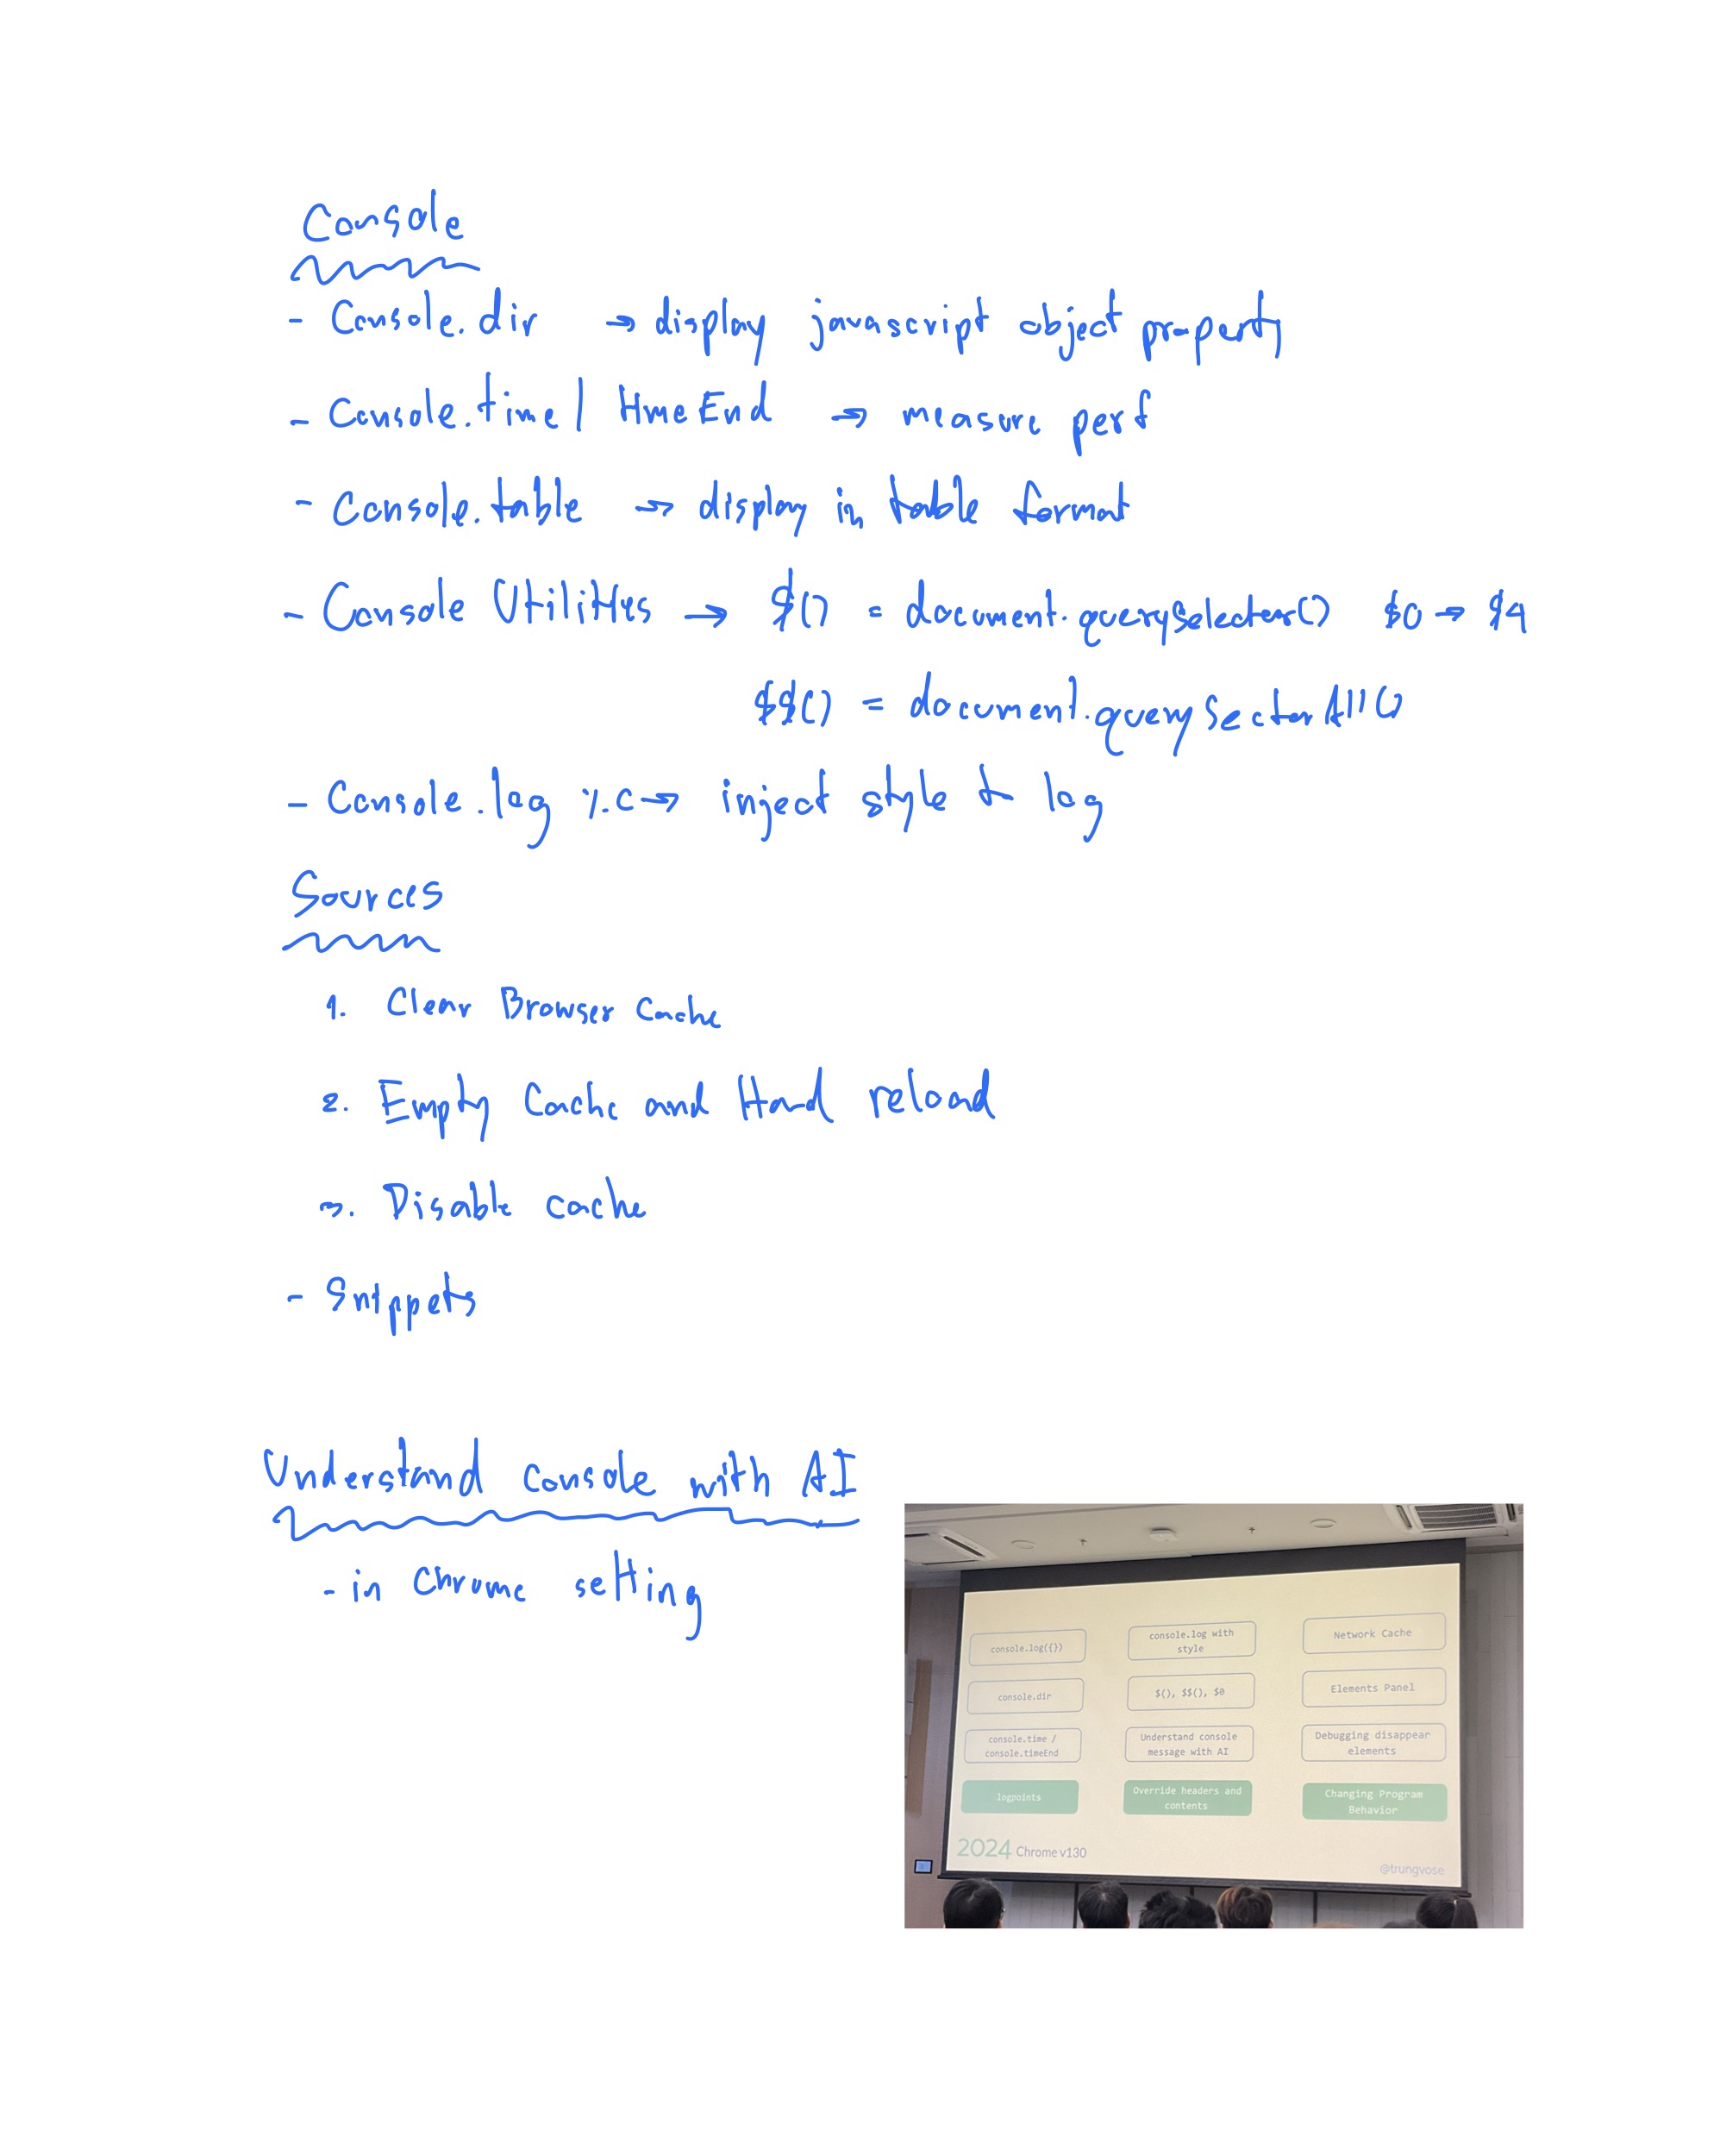 Console
- Console.dir → display javascript object property
- Console.time / timeEnd → measure perf
- Console.table → display in table format
- Console Utilities → $() = document.querySelector() $0 → $4
$$() = document.querySectorAll()
- Console.log %c → inject style to log
Sources
1. Clear Browser Cache
2. Empty Cache and Hard reload
3. Disable cache
- Snippets
Understand console with AI
- in Chrome setting
console.log({})
console.log with
style
Network Cache
console.dir
$(), $$(), $0
Elements Panel
console.time /
console.timeEnd
Understand console
message with AI
Debugging disappear
elements
logpoints
Override headers and
contents
Changing Program
Behavior
2024 Chrome v130
@trungvose